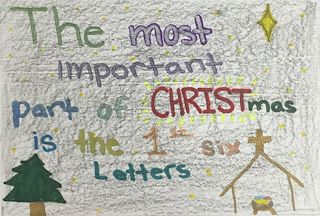 The most
important
part of CHRISTmas
is the 1st six
Letters